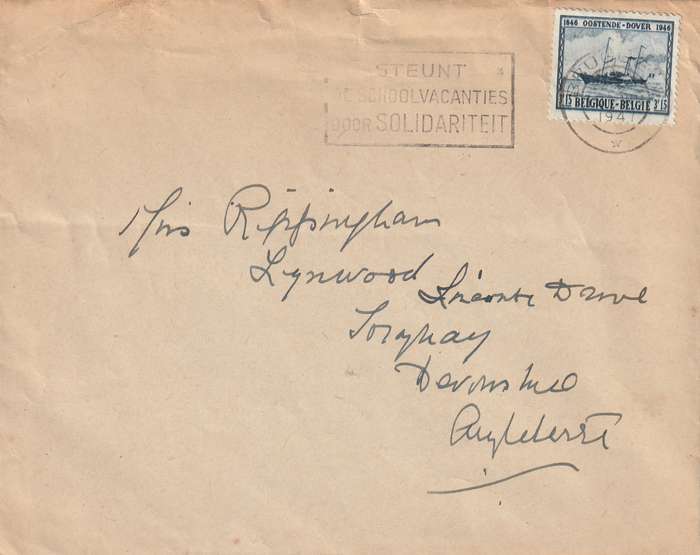 1846 OOSTENDE-DOVER 1946
3F15 BELGIQUE-BELGIË 3F15
1947
STEUNT
DE SCHOOLVACANTIES
DOOR SOLIDARITEIT
Miss
Lynwood
Lincombe Drive
Torquay
Devonshire
Angleterre